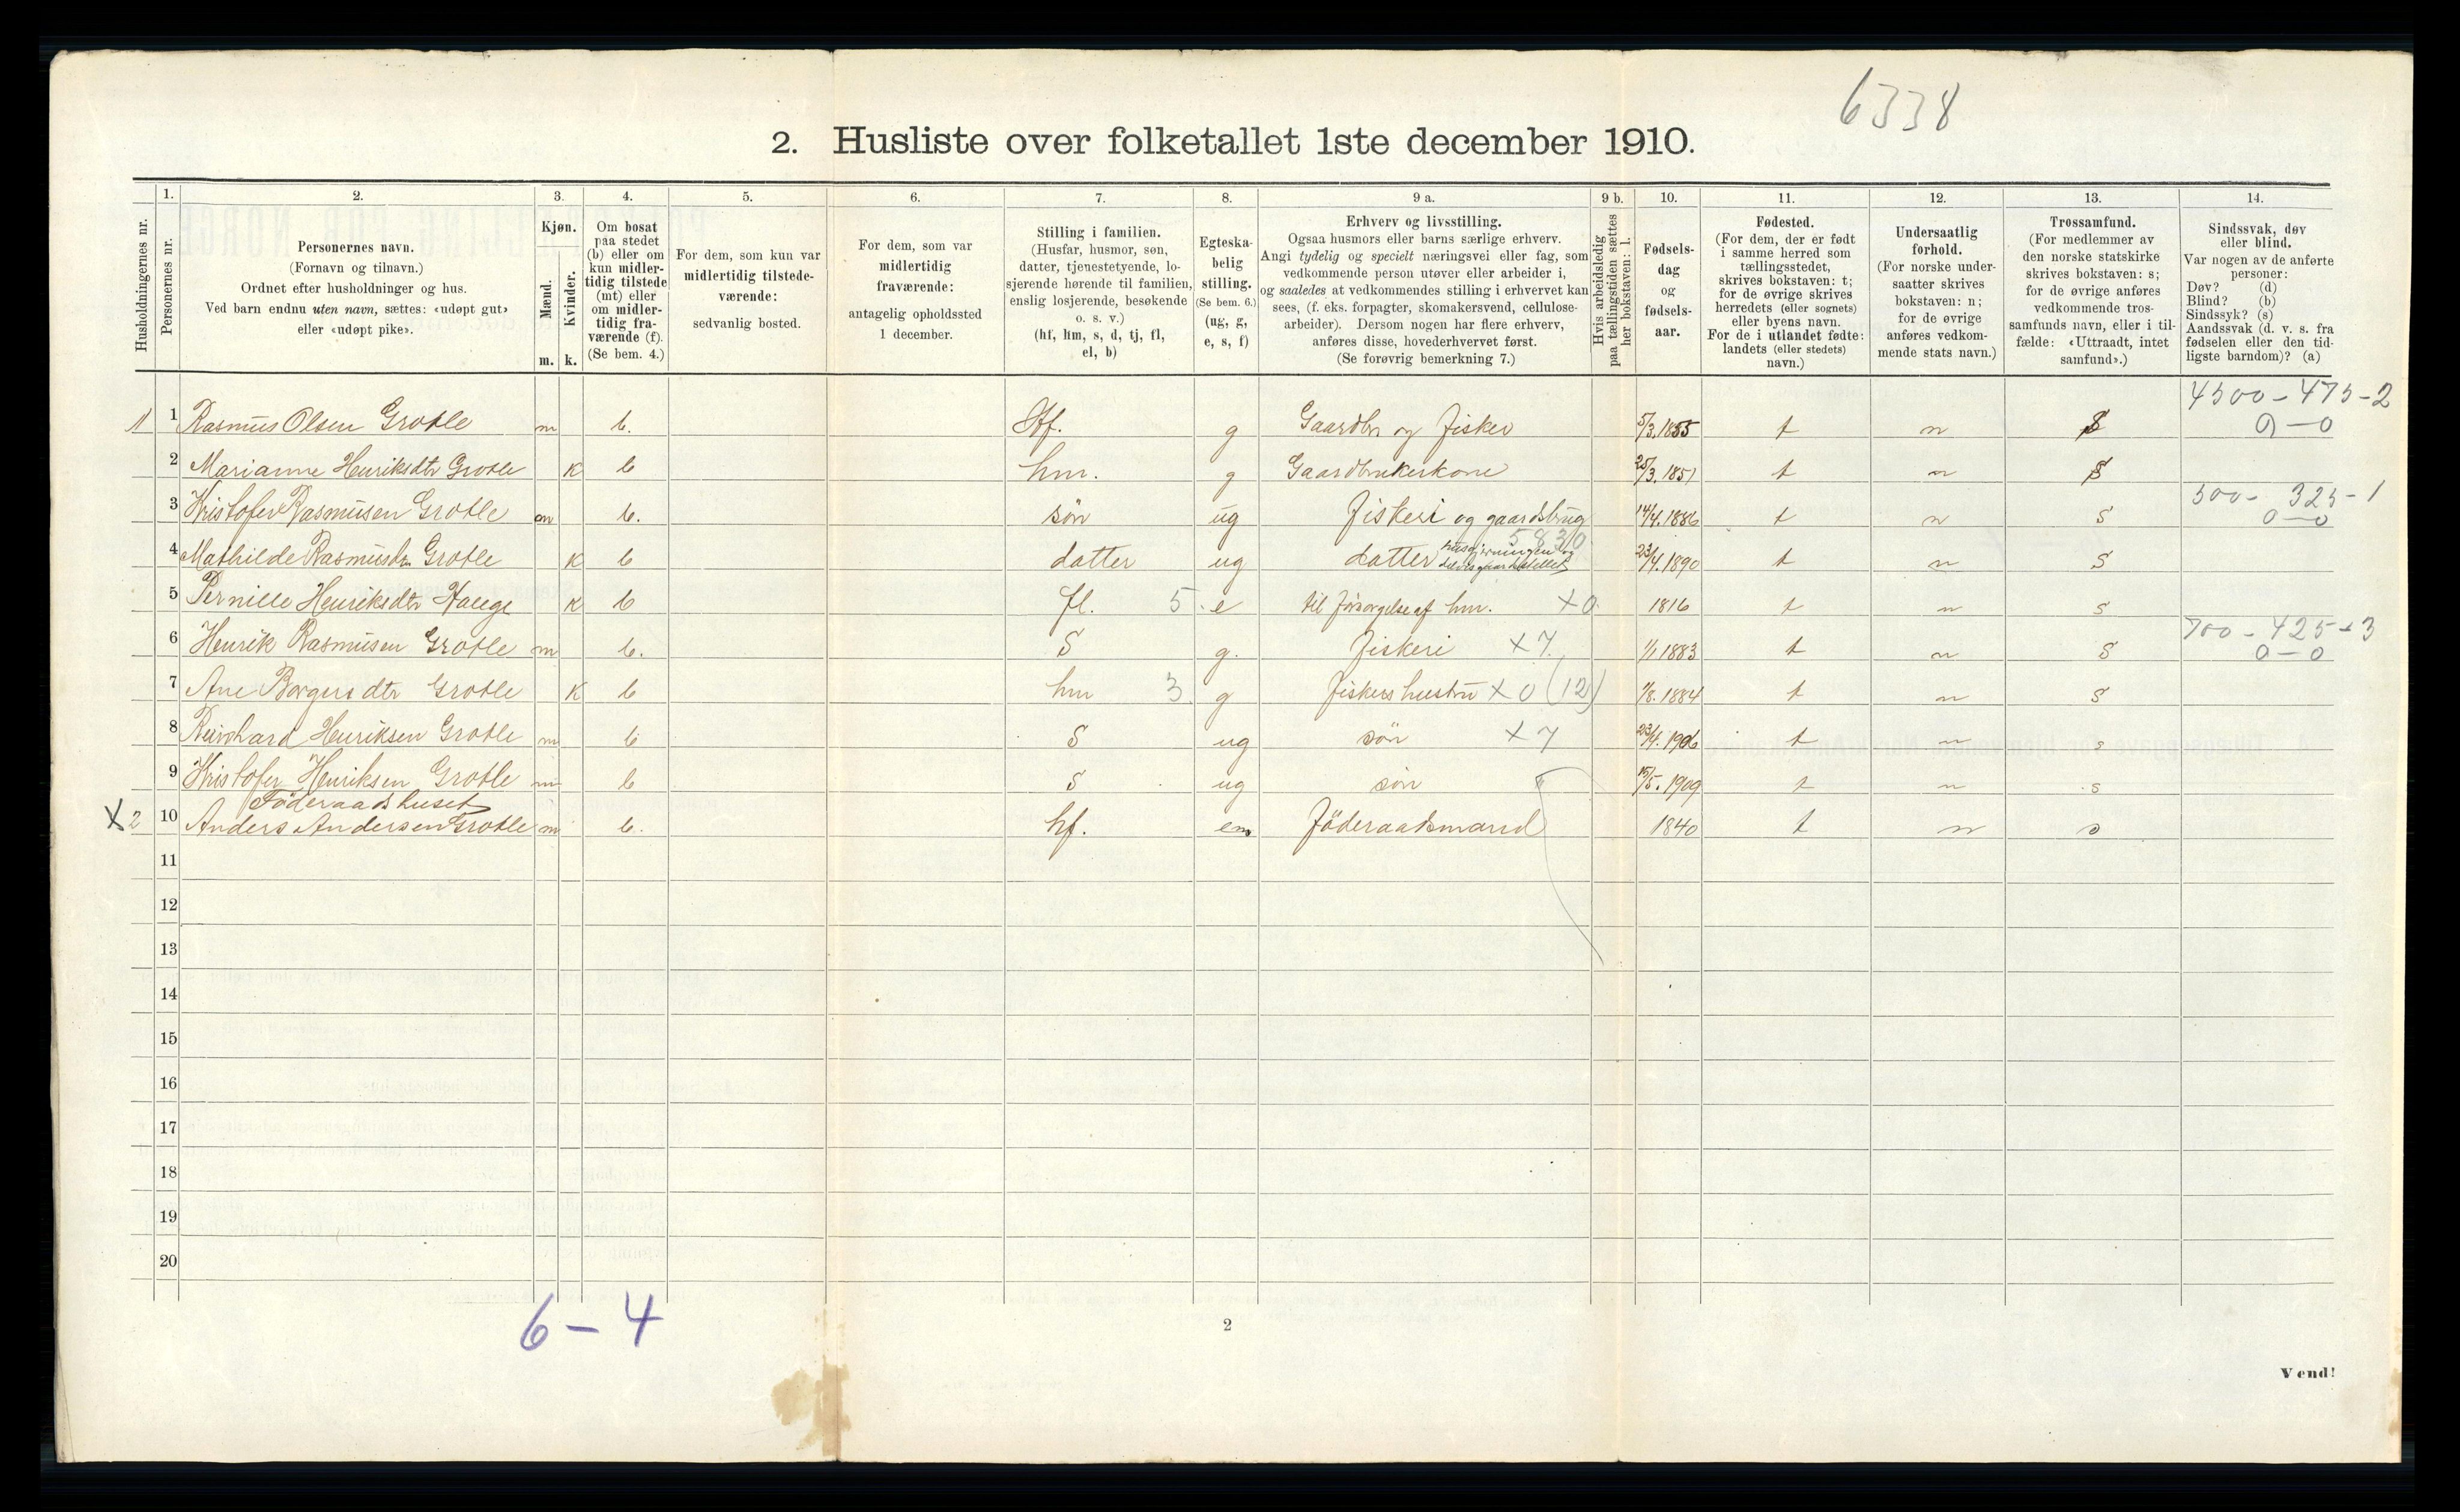 6338
2. Husliste over folketallet 1ste december 1910.
Husholdningernes nr.
1.
Personernes nr.
2.
Personernes navn.
(Fornavn og tilnavn.)
Ordnet efter husholdninger og hus.
Ved barn endnu uten navn, sættes: «udøpt gut»
eller «udøpt pike».
3.
Kjøn.
Mænd.
Kvinder.
m. k.
4.
Om bosat
paa stedet
(b) eller om
kun midler-
tidig tilstede
(mt) eller
om midler-
tidig fra-
værende (f).
(Se bem. 4.)
5.
For dem, som kun var
midlertidig tilstede-
værende:
sedvanlig bosted.
6.
For dem, som var
midlertidig
fraværende:
antagelig opholdssted
1 december.
7.
Stilling i familien.
(Husfar, husmor, søn,
datter, tjenestetyende, lo-
sjerende hørende til familien,
enslig losjerende, besøkende
o. s. v.)
(hf, hm, s, d, tj, fl,
el, b)
8.
Egteska-
belig
stilling.
(Se bem. 6.)
(ug, g,
e, s, f)
9 a.
Erhverv og livsstilling.
Ogsaa husmors eller barns særlige erhverv.
Angi tydelig og specielt næringsvei eller fag, som
vedkommende person utøver eller arbeider i,
og saaledes at vedkommendes stilling i erhvervet kan
sees, (f. eks. forpagter, skomakersvend, cellulose-
arbeider). Dersom nogen har flere erhverv,
anføres disse, hovederhvervet først.
(Se forøvrig bemerkning 7.)
9 b.
Hvis arbeidsledig
paa tællingstiden sættes
her bokstaven: l.
10.
Fødsels-
dag
og
fødsels-
aar.
11.
Fødested.
(For dem, der er født
i samme herred som
tællingsstedet,
skrives bokstaven: t;
for de øvrige skrives
herredets (eller sognets)
eller byens navn.
For de i utlandet fødte:
landets (eller stedets)
navn.)
12.
Undersaatlig
forhold.
(For norske under-
saatter skrives
bokstaven: n;
for de øvrige
anføres vedkom-
mende stats navn.)
13.
Trossamfund.
(For medlemmer av
den norske statskirke
skrives bokstaven: s;
for de øvrige anføres
vedkommende tros-
samfunds navn, eller i til-
fælde: «Uttraadt, intet
samfund».)
14.
Sindssvak, døv
eller blind.
Var nogen av de anførte
personer:
Døv? (d)
Blind? (b)
Sindssyk? (s)
Aandssvak (d. v. s. fra
fødselen eller den tid-
ligste barndom)? (a)
4500 - 475 - 2
1 1 Rasmus Olsen Grotle m b. Hf. g Gaardbr og fisker 5/3.1855 t n S 0 - 0
2 Marianne Henriksdtr Grotle k b hm. g Gaardbrukerkone 25/3.1851 t n S
500 - 325 - 1
3 Kristofer Rasmusen Grotle m b. søn ug fiskeri og gaardsbrug 14/4.1886 t n S 0 - 0
5830
4 Mathilde Rasmusdtr Grotle k b datter ug datter husgjerningen og 23/4.1890 t n S
5 Pernille Henriksdtr Hauge k b fl. 5 e til forsørgelse af hm. x0 1816 t n s
700 - 425 - 3
6 Henrik Rasmusen Grotle m b. S g. fiskeri x7 1/1 1883 t n S 0 - 0
7 Ane Borgersdtr Grotle k b hm 3 g fiskers hustru x0 (12) 1/8.1884 t n s
8 Reinhard Henriksen Grotle m b S ug søn x7 23/4.1906 t n s
9 Kristofer Henriksen Grotle m b s ug søn 15/5.1909 t n s
Føderaadshuset
X 2 10 Anders Andersen Grotle m b. hf. em føderaadsmand 1840 t n s
11
12
13
14
15
16
17
18
19
20
6 - 4
2
Vend!